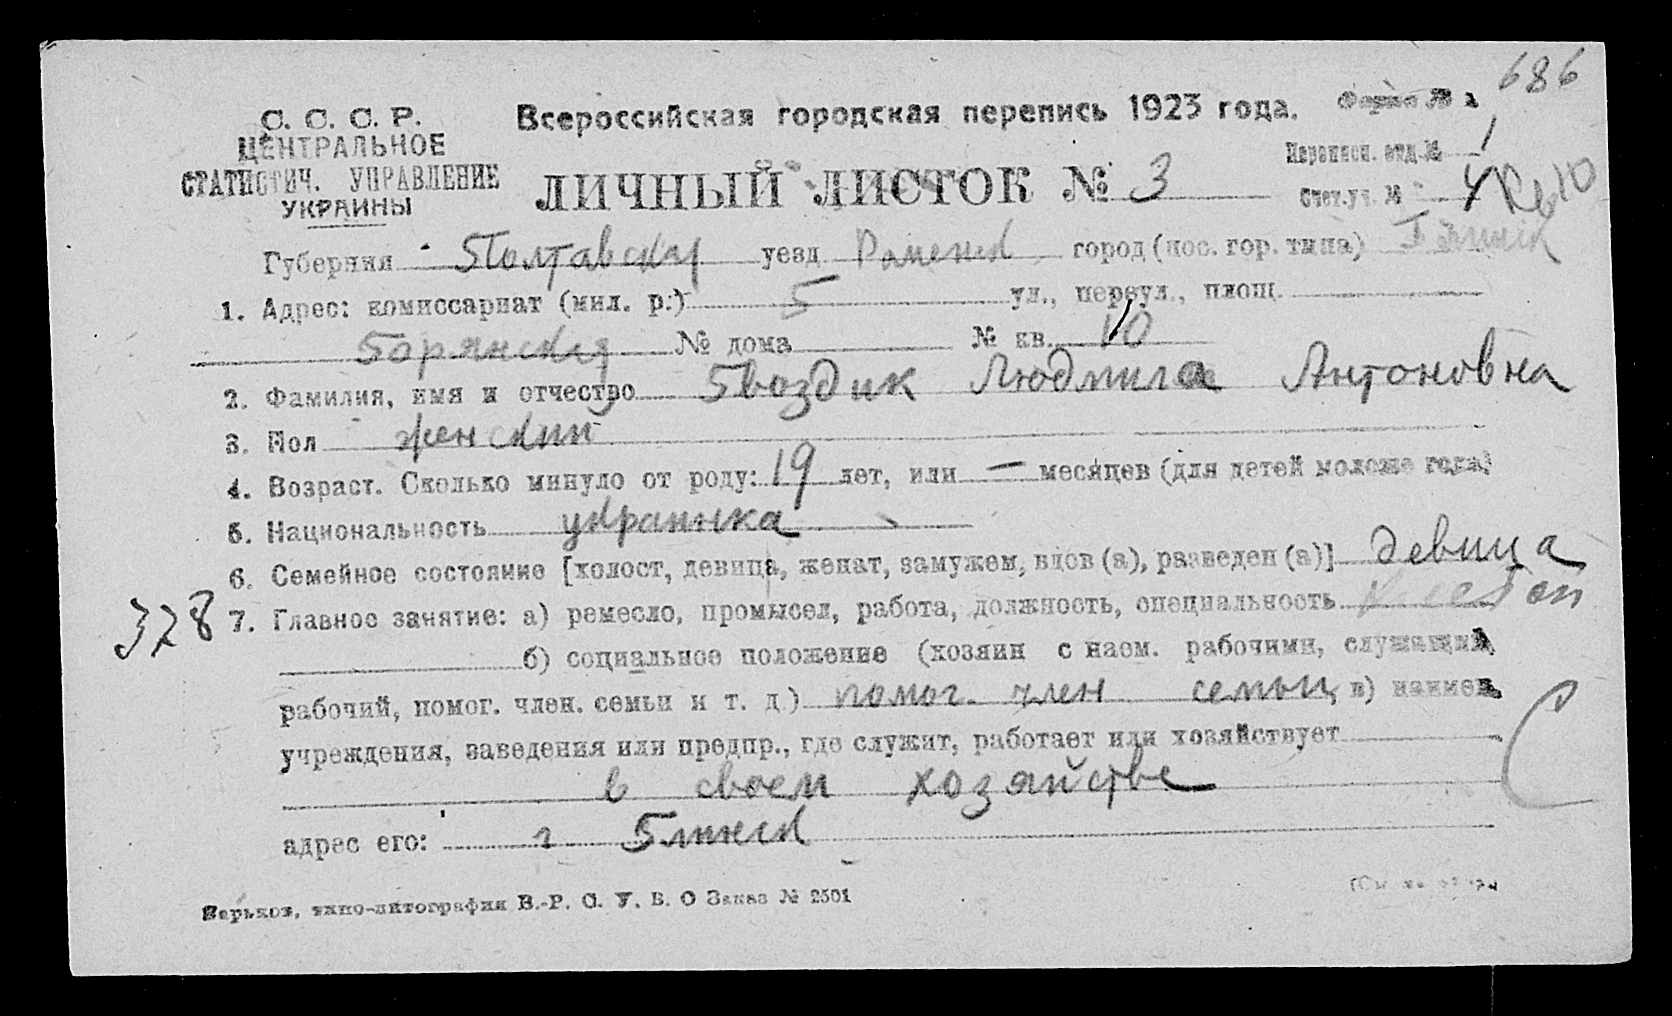 686
С. С. С. Р.
ЦЕНТРАЛЬНОЕ
СТАТИСТИЧ. УПРАВЛЕНИЕ
УКРАИНЫ
Всероссийская городская перепись 1923 года.
Форма № 2
Переписн. отд. № 1
ЛИЧНЫЙ ЛИСТОК № 3
Счет. уч. № 4
Губерния Полтавская уезд Роменск город (пос. гор. типа) Глинск
1. Адрес: комиссариат (мил. р.) 5 ул., переул., площ.
№ дома № кв. 10
2. Фамилия, имя и отчество Гвоздик Людмила Антоновна
3. Пол женский
4. Возраст. Сколько минуло от роду: 19 лет, или — месяцев (для детей моложе года)
5. Национальность украинка
6. Семейное состояние [холост, девица, женат, замужем, вдов (а), разведен (а)] девица
328 7. Главное занятие: а) ремесло, промысел, работа, должность, специальность
б) социальное положение (хозяин с наем. рабочими, служащий,
рабочий, помог. член. семьи и т. д.) помог. член семьи, в) наимен.
учреждения, заведения или предпр., где служит, работает или хозяйствует
в своем хозяйстве
адрес его: г Глинск
Харьков, типо-литография В.-Р. С. У. В. О Заказ № 2501